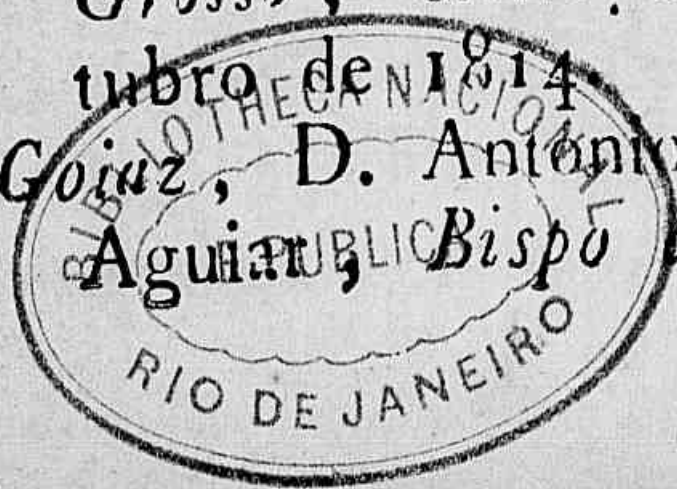 tubro de 1814.
Goiaz, D. Antonio
Aguiar, Bispo
BIBLIOTHECA NACIONAL
E PUBLICA
RIO DE JANEIRO